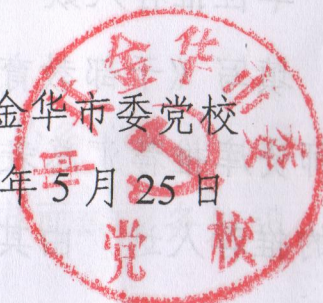 金华市委党校
年5月25日
中共金华市委
党校